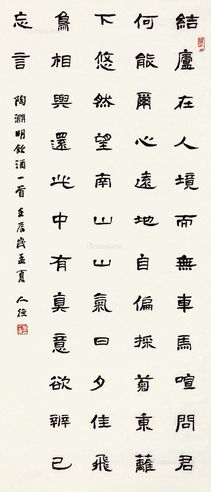 結廬在人境而無車馬喧問君
何能爾心遠地自偏採菊東籬
下悠然望南山山氣日夕佳飛
鳥相與還此中有真意欲辨已
忘言
陶淵明飲酒一首 壬辰歲孟夏 人德